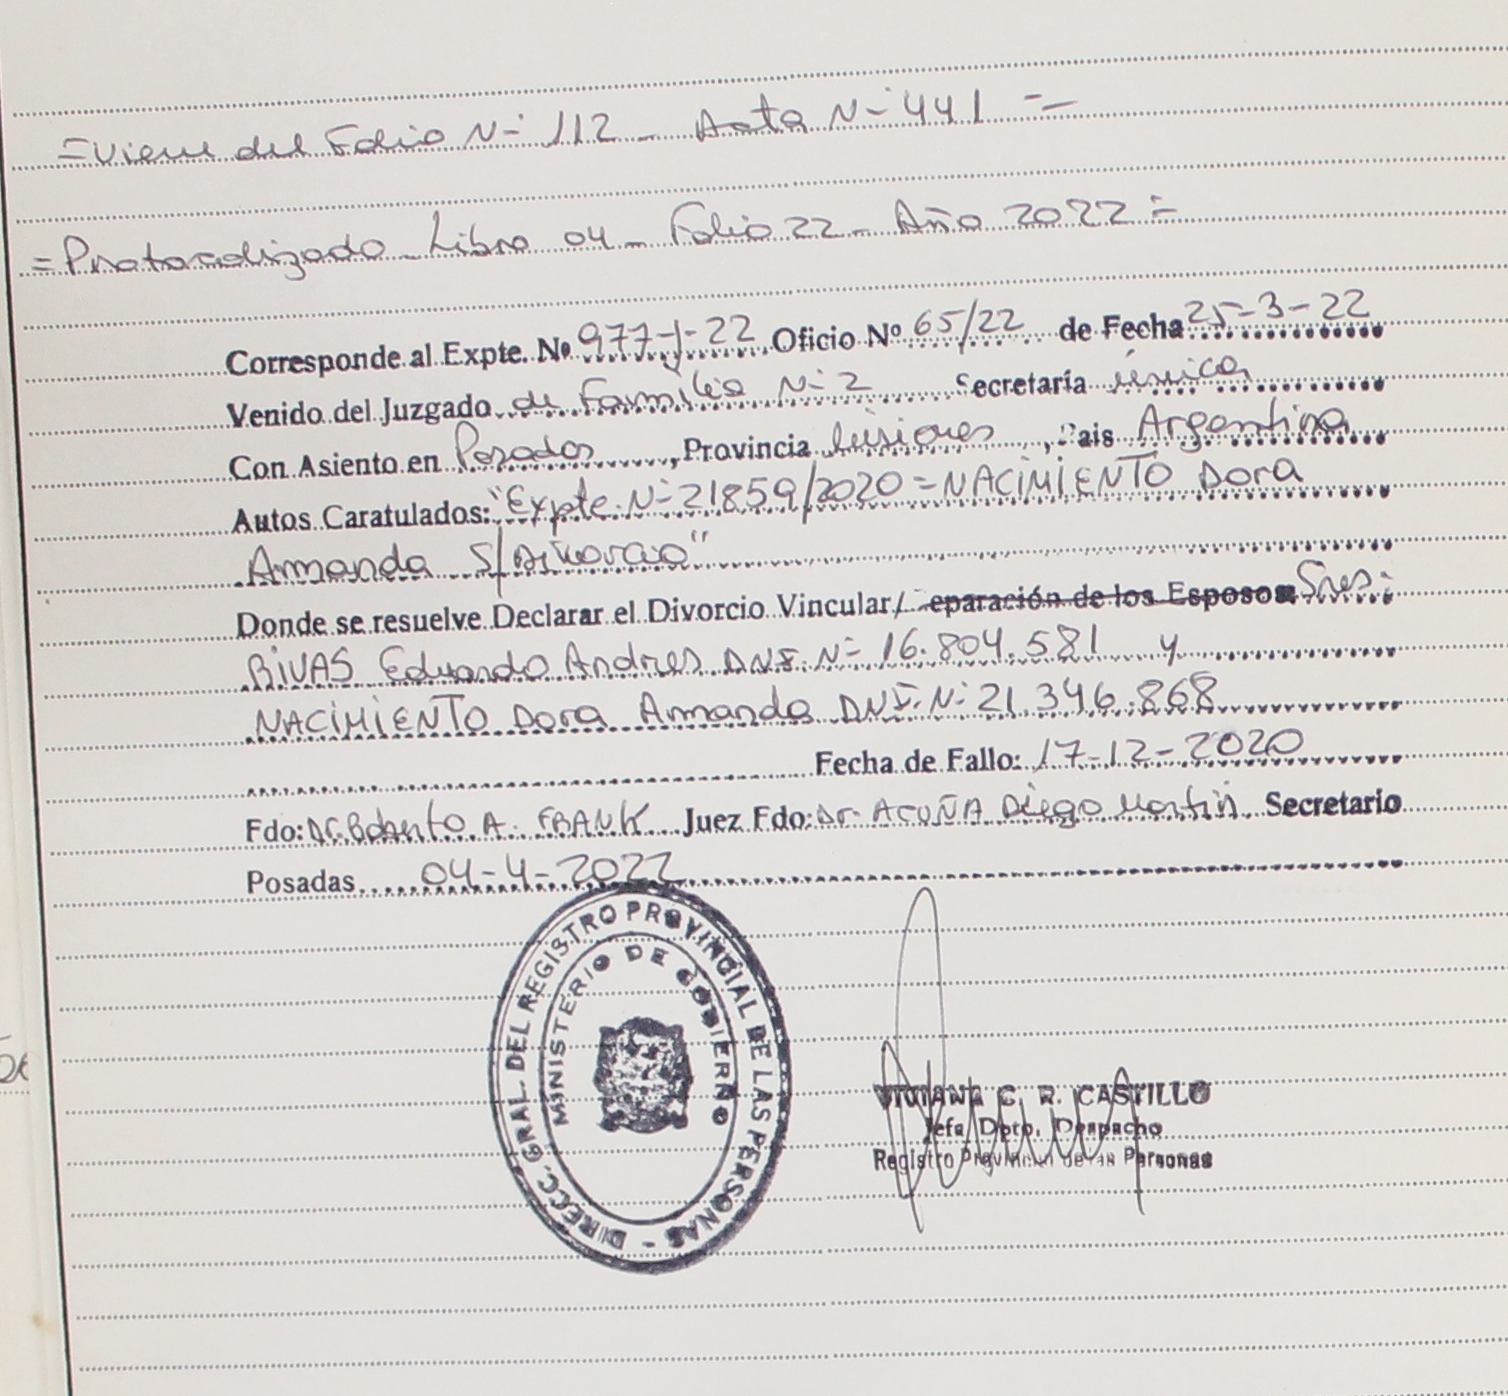 =Viene del Folio N- 112 - Acta N- 441 =
=Protocolizado - Libro 04 - Folio 22 - Año 2022 =
Corresponde al Expte. Nº 977-J-22 Oficio Nº 65/22 de Fecha 25-3-22
Venido del Juzgado de Familia N- 2 Secretaría única
Con Asiento en Posadas, Provincia Misiones, Pais Argentina
Autos Caratulados: "Expte. N- 21859/2020 = NACIMIENTO Dora
Armanda S/Divorcio"
Donde se resuelve Declarar el Divorcio Vincular/ Separación de los Esposos Sres:
RIVAS Eduardo Andres DNI. N- 16.804.581 y
NACIMIENTO Dora Armanda DNI. N- 21.346.868
Fecha de Fallo: 17-12-2020
Fdo: Dr. Roberto A. FRANK Juez Fdo: Dr. ACUÑA Diego Martin Secretario
Posadas 04-4-2022
DIRECC. GRAL. DEL REGISTRO PROVINCIAL DE LAS PERSONAS -
MINISTERIO DE GOBIERNO
VIVIANA C. R. CASTILLO
Jefa Dpto. Despacho
Registro Provincial de las Personas